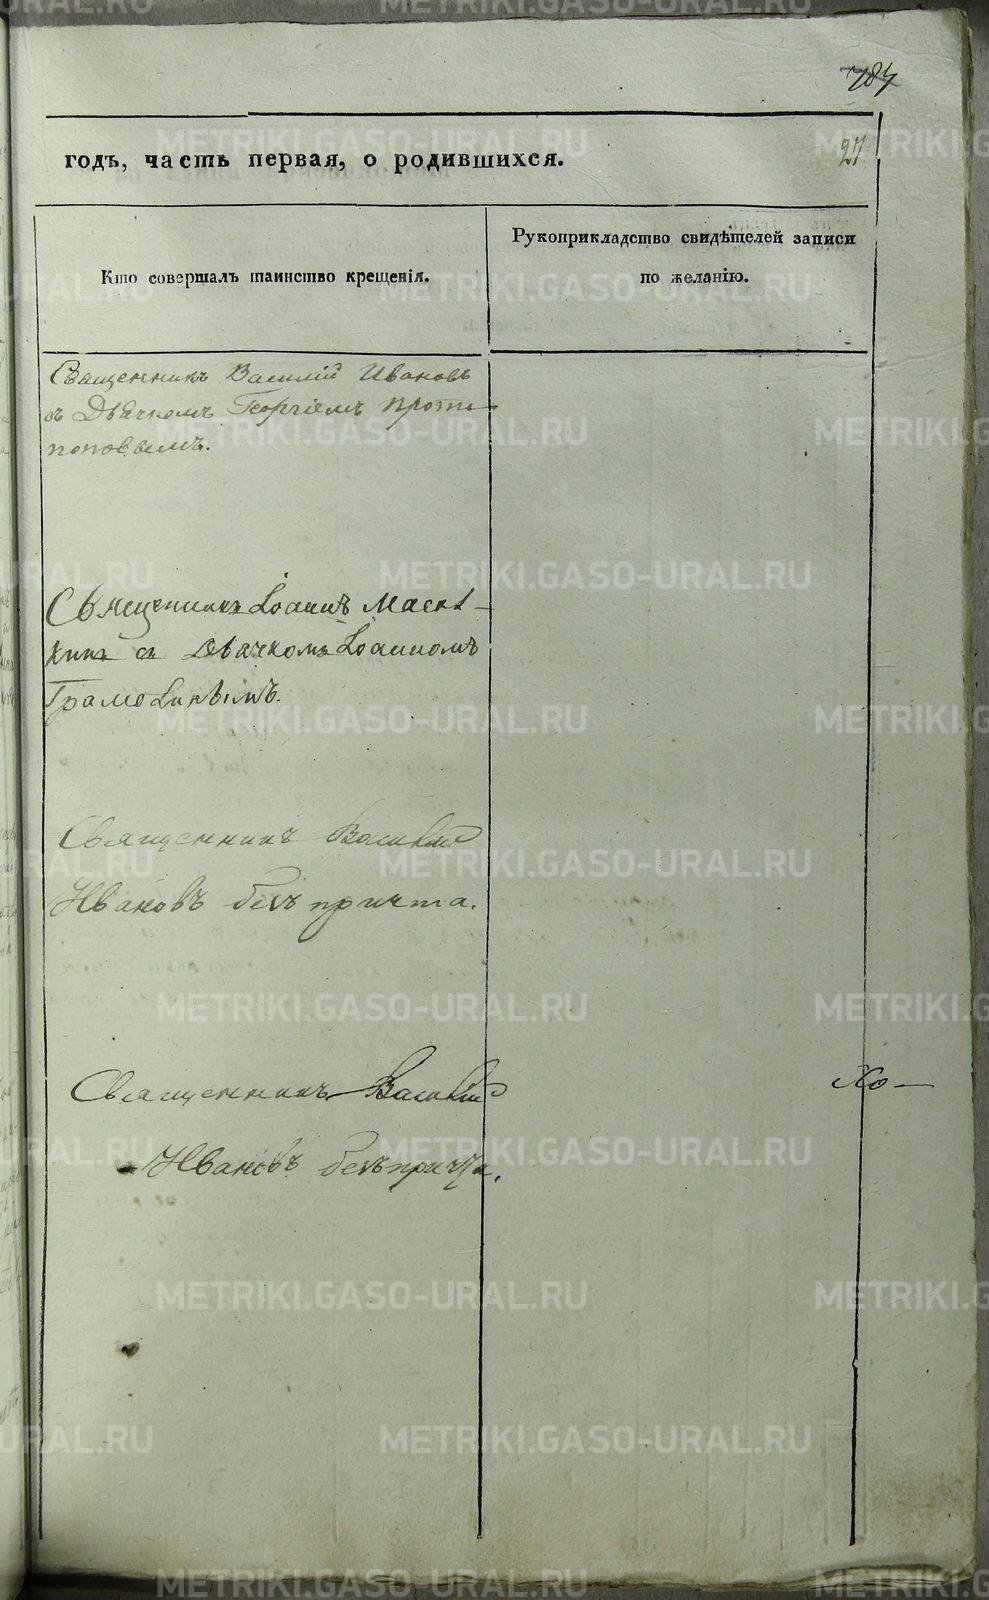 годъ, часть первая, о родившихся.
27
Кто совершалъ таинство крещенія.
Рукоприкладство свидѣтелей записи
по желанію.
Священникъ Василій Ивановъ
съ Дьячкомъ Георгіемъ Прото-
поповымъ.
Священникъ Іоаннъ
съ Дьячкомъ Іоанномъ
Грамолинымъ.
Священникъ Василій
Ивановъ безъ причта.
Священникъ Василій
Ивановъ безъ причта.
Хо-
METRIKI.GASO-URAL.RU